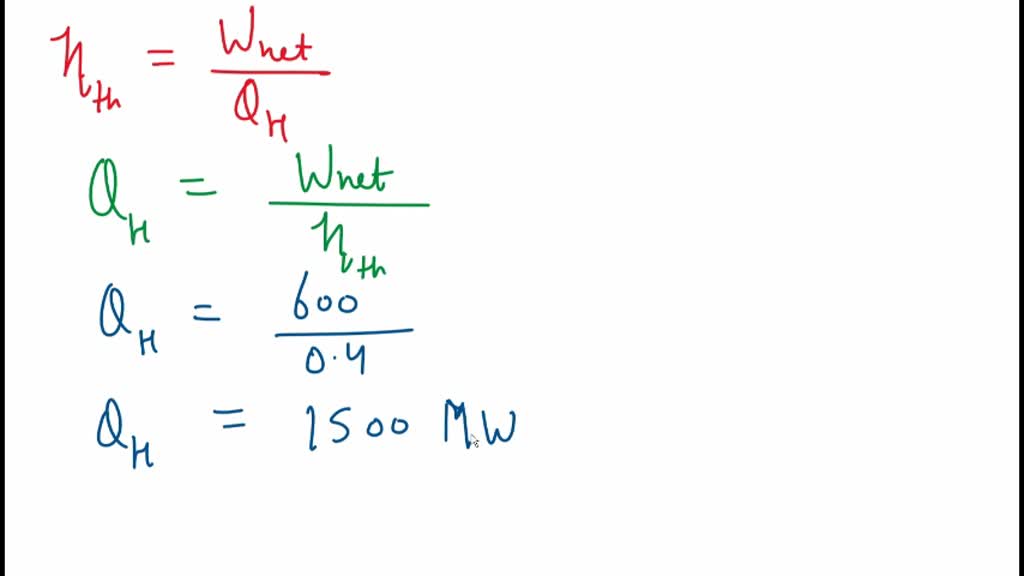 η_th = W_net / Q_H
Q_H = W_net / η_th
Q_H = 600 / 0.4
Q_H = 1500 MW